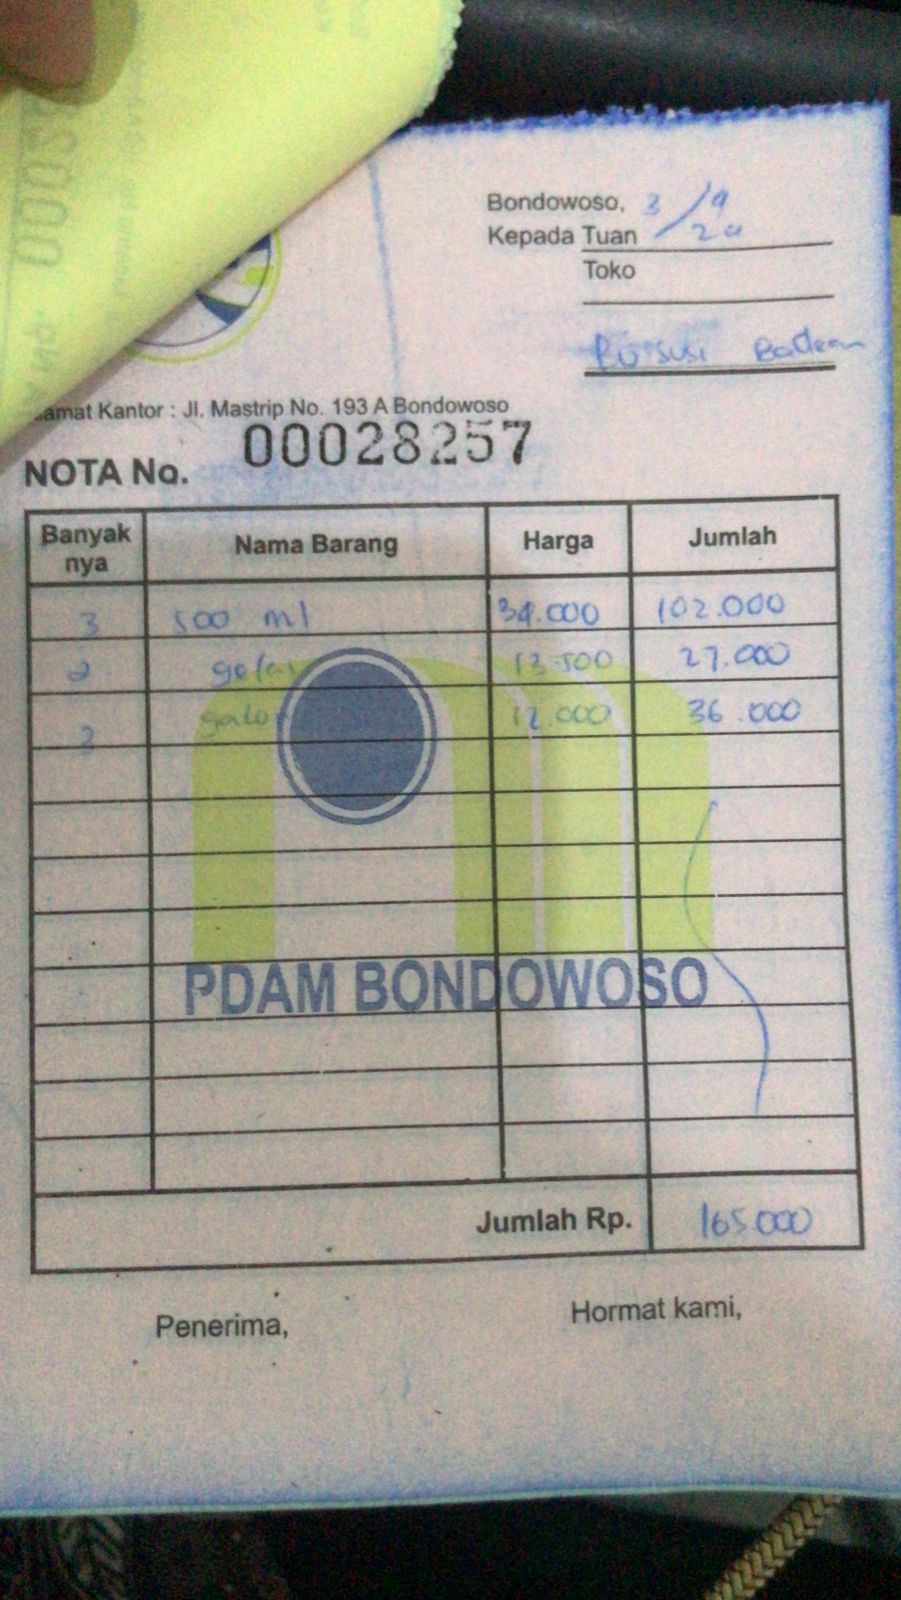 Bondowoso, 3/9
Kepada Tuan 20
Toko
Bu Susi Badean
amat Kantor : Jl. Mastrip No. 193 A Bondowoso
NOTA No. 00028257
Banyak nya Nama Barang Harga Jumlah
3 500 ml 34.000 102.000
2 gelas 13.500 27.000
3 galon 12.000 36.000
PDAM BONDOWOSO
Jumlah Rp. 165.000
Penerima, Hormat kami,